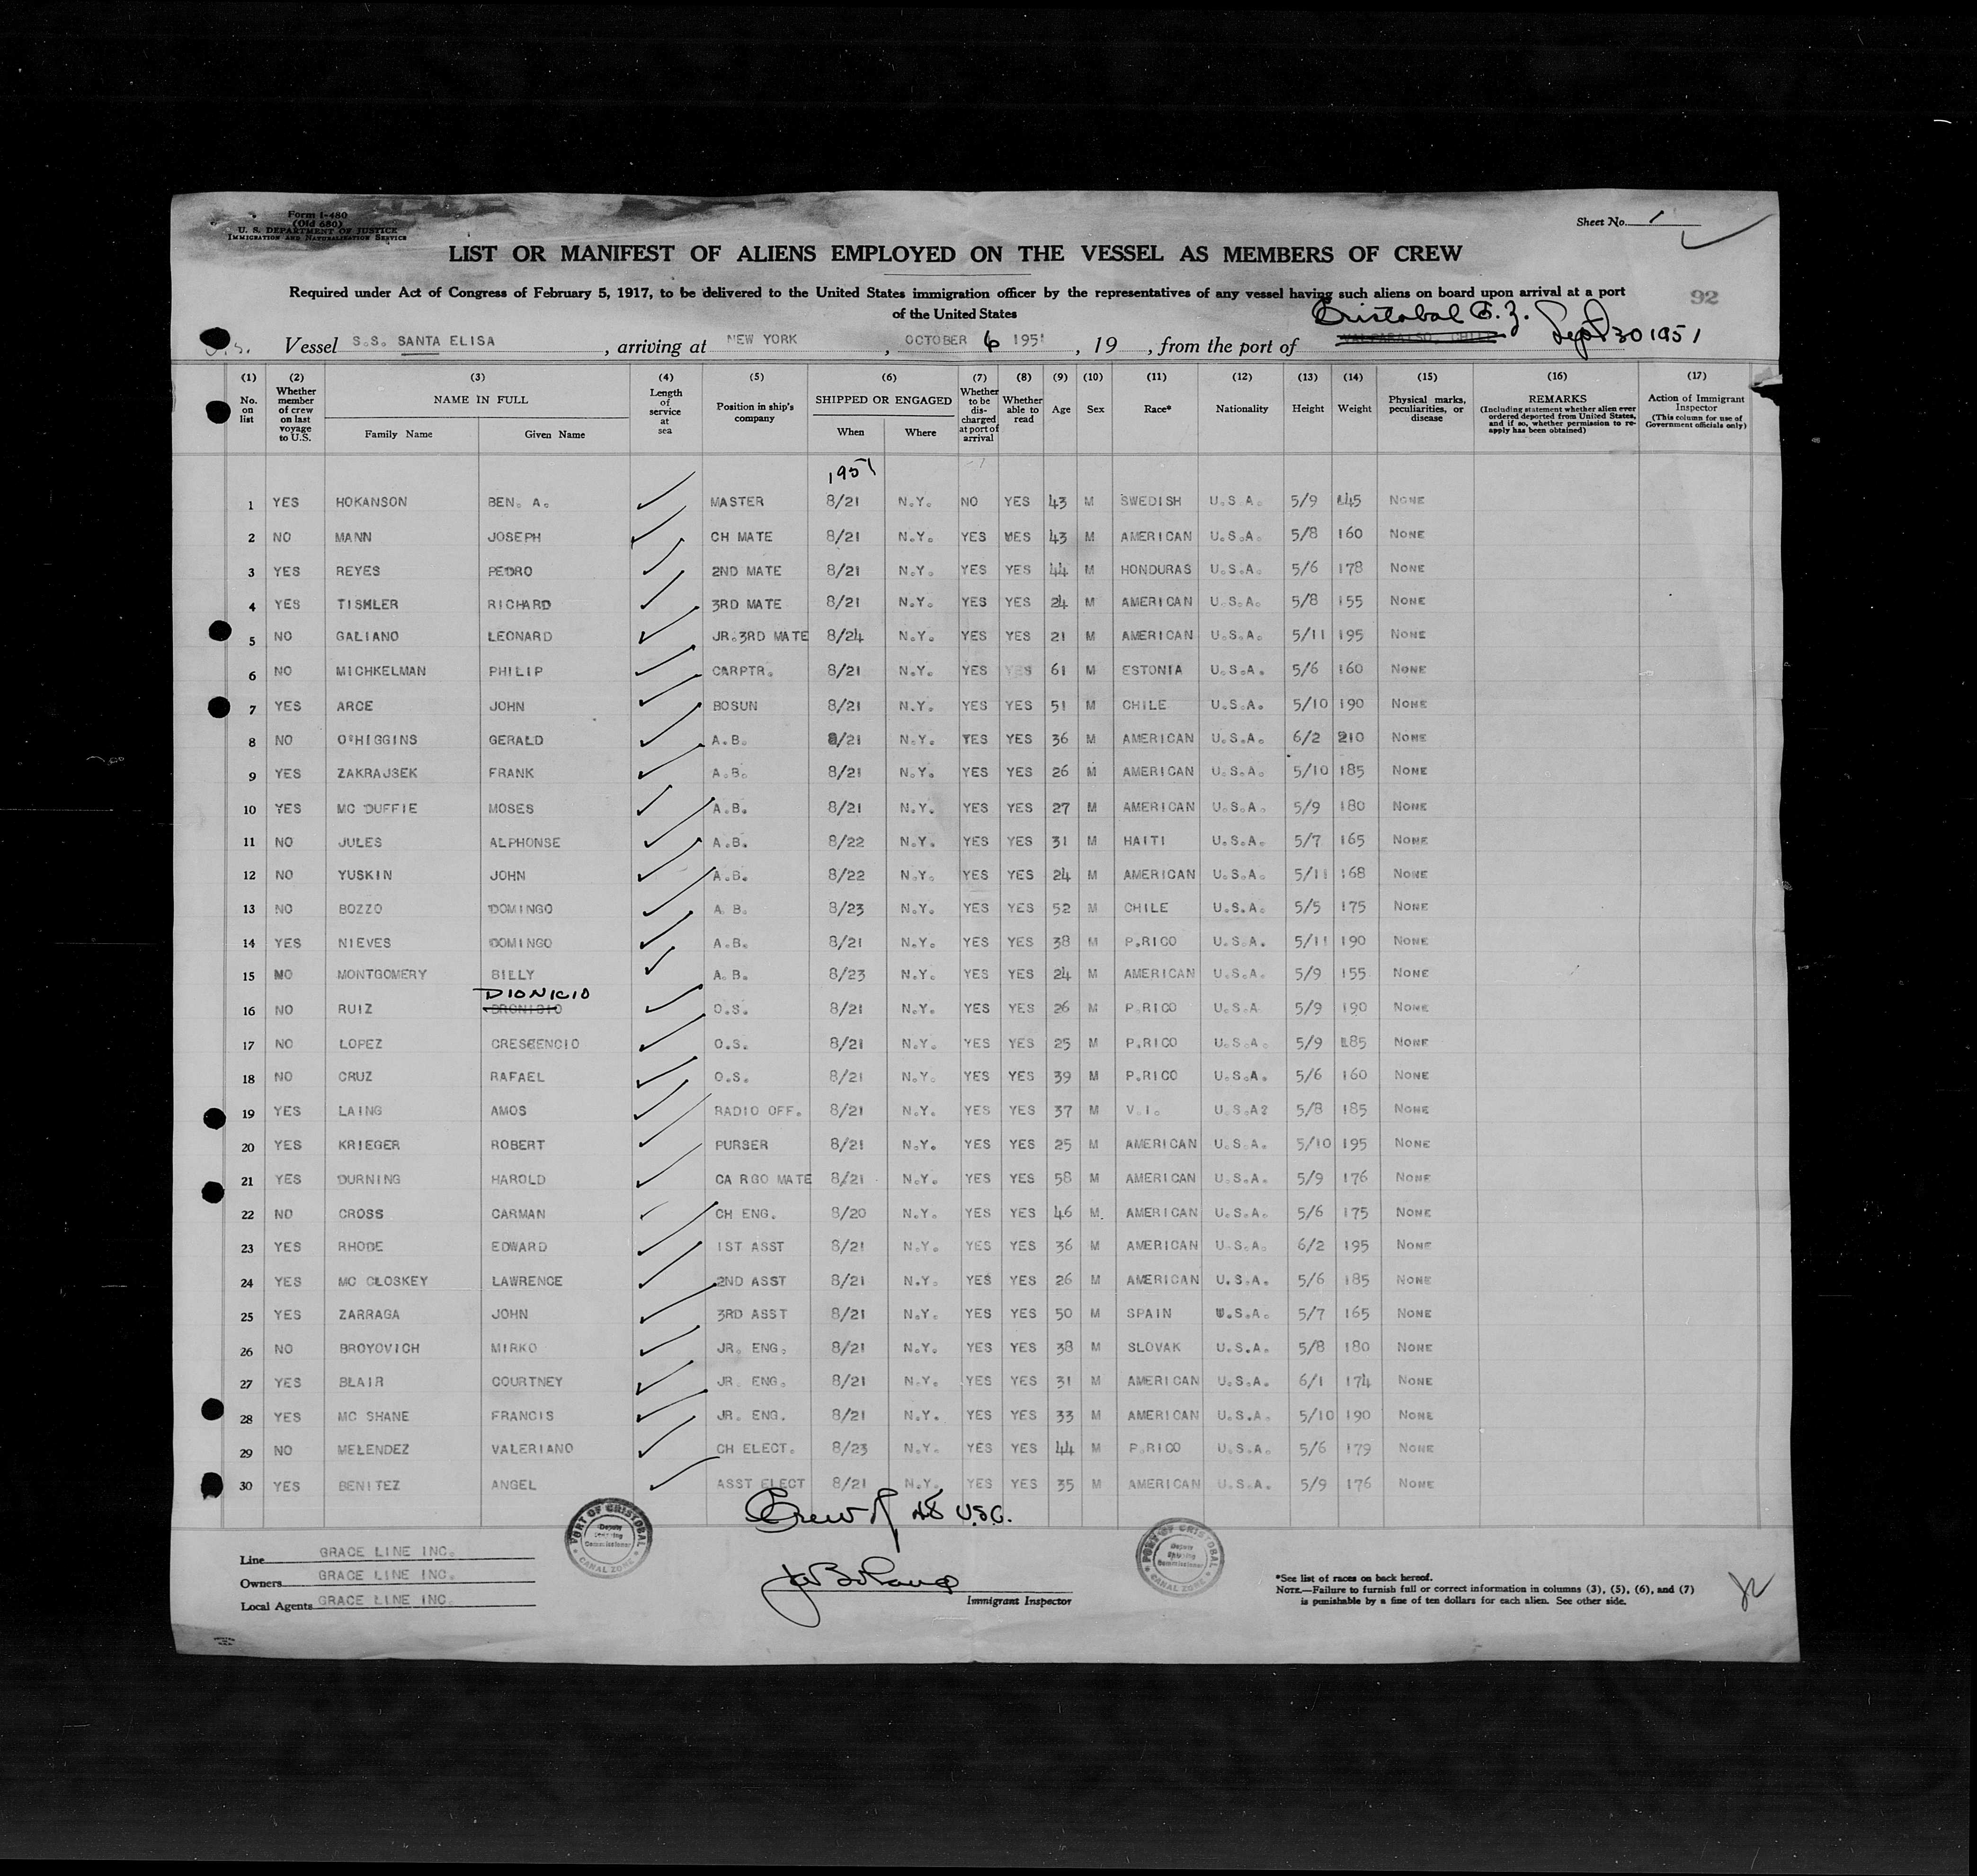 Form I-480
(Old 680)
U. S. DEPARTMENT OF JUSTICE
IMMIGRATION AND NATURALIZATION SERVICE
Sheet No. 1
LIST OR MANIFEST OF ALIENS EMPLOYED ON THE VESSEL AS MEMBERS OF CREW
Required under Act of Congress of February 5, 1917, to be delivered to the United States immigration officer by the representatives of any vessel having such aliens on board upon arrival at a port
of the United States
92
Cristobal C.Z. Sept 30 1951
Vessel S.S. SANTA ELISA, arriving at NEW YORK, OCTOBER 6 1951, 19 , from the port of VALPARAISO, CHILE
(1) No. on list (2) Whether member of crew on last voyage to U.S. (3) NAME IN FULL Family Name Given Name (4) Length of service at sea (5) Position in ship's company (6) SHIPPED OR ENGAGED When Where (7) Whether to be discharged at port of arrival (8) Whether able to read (9) Age (10) Sex (11) Race* (12) Nationality (13) Height (14) Weight (15) Physical marks, peculiarities, or disease (16) REMARKS (Including statement whether alien ever ordered deported from United States, and if so, whether permission to re-apply has been obtained) (17) Action of Immigrant Inspector (This column for use of Government officials only)
1951
1 YES HOKANSON BEN. A. MASTER 8/21 N.Y. NO YES 43 M SWEDISH U.S.A. 5/9 145 NONE
2 NO MANN JOSEPH CH MATE 8/21 N.Y. YES YES 43 M AMERICAN U.S.A. 5/8 160 NONE
3 YES REYES PEDRO 2ND MATE 8/21 N.Y. YES YES 44 M HONDURAS U.S.A. 5/6 178 NONE
4 YES TISHLER RICHARD 3RD MATE 8/21 N.Y. YES YES 24 M AMERICAN U.S.A. 5/8 155 NONE
5 NO GALIANO LEONARD JR.3RD MATE 8/24 N.Y. YES YES 21 M AMERICAN U.S.A. 5/11 195 NONE
6 NO MICHKELMAN PHILIP CARPTR. 8/21 N.Y. YES YES 61 M ESTONIA U.S.A. 5/6 160 NONE
7 YES ARCE JOHN BOSUN 8/21 N.Y. YES YES 51 M CHILE U.S.A. 5/10 190 NONE
8 NO O'HIGGINS GERALD A.B. 8/21 N.Y. YES YES 36 M AMERICAN U.S.A. 6/2 210 NONE
9 YES ZAKRAJSEK FRANK A.B. 8/21 N.Y. YES YES 26 M AMERICAN U.S.A. 5/10 185 NONE
10 YES MC DUFFIE MOSES A.B. 8/21 N.Y. YES YES 27 M AMERICAN U.S.A. 5/9 180 NONE
11 NO JULES ALPHONSE A.B. 8/22 N.Y. YES YES 31 M HAITI U.S.A. 5/7 165 NONE
12 NO YUSKIN JOHN A.B. 8/22 N.Y. YES YES 24 M AMERICAN U.S.A. 5/11 168 NONE
13 NO BOZZO DOMINGO A.B. 8/23 N.Y. YES YES 52 M CHILE U.S.A. 5/5 175 NONE
14 YES NIEVES DOMINGO A.B. 8/21 N.Y. YES YES 38 M P.RICO U.S.A. 5/11 190 NONE
15 NO MONTGOMERY BILLY A.B. 8/23 N.Y. YES YES 24 M AMERICAN U.S.A. 5/9 155 NONE
DIONICIO
16 NO RUIZ O.S. 8/21 N.Y. YES YES 26 M P.RICO U.S.A 5/9 190 NONE
17 NO LOPEZ CRESCENCIO O.S. 8/21 N.Y. YES YES 25 M P.RICO U.S.A. 5/9 185 NONE
18 NO CRUZ RAFAEL O.S. 8/21 N.Y. YES YES 39 M P.RICO U.S.A. 5/6 160 NONE
19 YES LAING AMOS RADIO OFF. 8/21 N.Y. YES YES 37 M V.I. U.S.A? 5/8 185 NONE
20 YES KRIEGER ROBERT PURSER 8/21 N.Y. YES YES 25 M AMERICAN U.S.A. 5/10 195 NONE
21 YES DURNING HAROLD CA RGO MATE 8/21 N.Y. YES YES 58 M AMERICAN U.S.A. 5/9 176 NONE
22 NO CROSS CARMAN CH ENG. 8/20 N.Y. YES YES 46 M. AMERICAN U.S.A. 5/6 175 NONE
23 YES RHODE EDWARD 1ST ASST 8/21 N.Y. YES YES 36 M AMERICAN U.S.A. 6/2 195 NONE
24 YES MC CLOSKEY LAWRENCE 2ND ASST 8/21 N.Y. YES YES 26 M AMERICAN U.S.A. 5/6 185 NONE
25 YES ZARRAGA JOHN 3RD ASST 8/21 N.Y. YES YES 50 M SPAIN U.S.A. 5/7 165 NONE
26 NO BROYOVICH MIRKO JR. ENG. 8/21 N.Y. YES YES 38 M SLOVAK U.S.A. 5/8 180 NONE
27 YES BLAIR COURTNEY JR. ENG. 8/21 N.Y. YES YES 31 M AMERICAN U.S.A. 6/1 174 NONE
28 YES MC SHANE FRANCIS JR. ENG. 8/21 N.Y. YES YES 33 M AMERICAN U.S.A. 5/10 190 NONE
29 NO MELENDEZ VALERIANO CH ELECT. 8/23 N.Y. YES YES 44 M P.RICO U.S.A. 5/6 179 NONE
30 YES BENITEZ ANGEL ASST ELECT 8/21 N.Y. YES YES 35 M AMERICAN U.S.A. 5/9 176 NONE
Crew of 48 U.S.C.
PORT OF CRISTOBAL Deputy Shipping Commissioner CANAL ZONE
PORT OF CRISTOBAL Deputy Shipping Commissioner CANAL ZONE
Line GRACE LINE INC.
Owners GRACE LINE INC.
Local Agents GRACE LINE INC.
Immigrant Inspector
*See list of races on back hereof.
NOTE.—Failure to furnish full or correct information in columns (3), (5), (6), and (7)
is punishable by a fine of ten dollars for each alien. See other side.